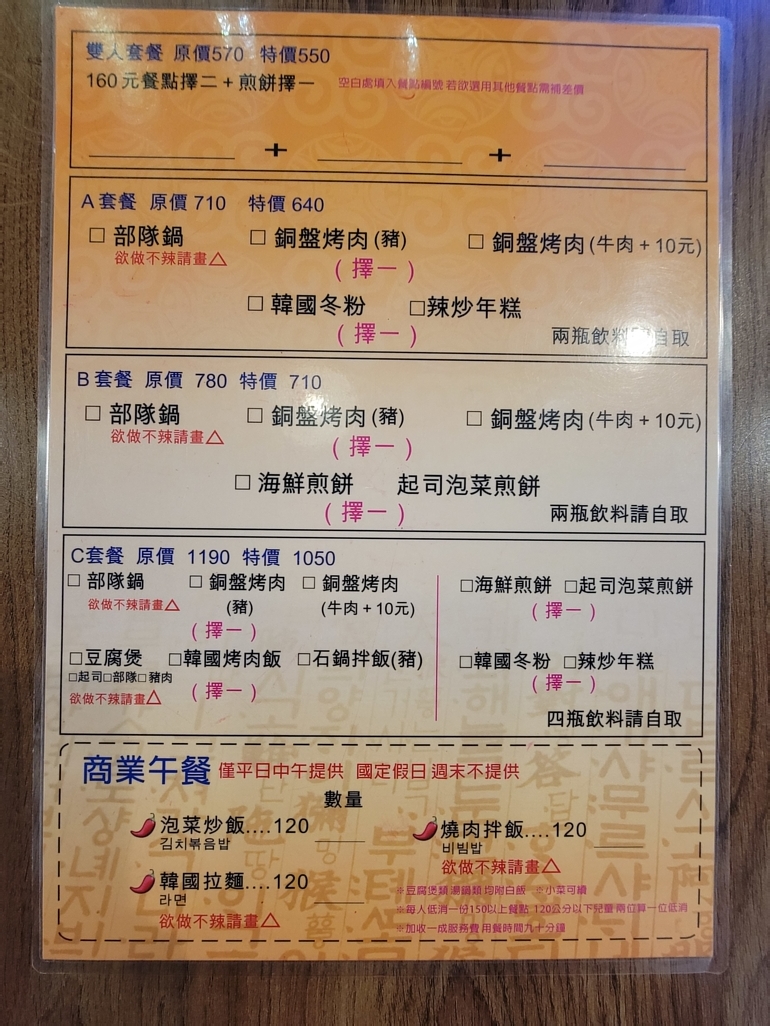 雙人套餐 原價570 特價550
160元餐點擇二+煎餅擇一 空白處填入餐點編號 若欲選用其他餐點需補差價
+ +
A套餐 原價710 特價640
□ 部隊鍋 □ 銅盤烤肉(豬) □ 銅盤烤肉(牛肉+10元)
欲做不辣請畫△
(擇一)
□ 韓國冬粉 □辣炒年糕
(擇一) 兩瓶飲料 自取
B套餐 原價 780 特價 710
□ 部隊鍋 □ 銅盤烤肉(豬) □ 銅盤烤肉(牛肉+10元)
欲做不辣請畫△
(擇一)
□ 海鮮煎餅 起司泡菜煎餅
(擇一) 兩瓶飲料請自取
C套餐 原價 1190 特價 1050
□ 部隊鍋 □ 銅盤烤肉 □ 銅盤烤肉 □海鮮煎餅 □起司泡菜煎餅
欲做不辣請畫△ (豬) (牛肉+10元) (擇一)
(擇一)
□豆腐煲 □韓國烤肉飯 □石鍋拌飯(豬) □韓國冬粉 □辣炒年糕
□起司□部隊□豬肉 (擇一)
欲做不辣請畫△ (擇一)
四瓶飲料請自取
商業午餐 僅平日中午提供 國定假日 週末不提供
數量
泡菜炒飯....120 燒肉拌飯....120
김치볶음밥 비빔밥
欲做不辣請畫△
韓國拉麵....120
라면
欲做不辣請畫△
※豆腐煲類 湯鍋類 均附白飯 ※小菜可續
※每人低消一份150以上餐點 120公分以下兒童 兩位算一位低消
※加收一成服務費 用餐時間九十分鐘